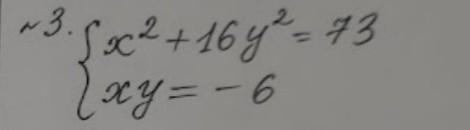 ~3. { x² + 16y² = 73
xy = - 6